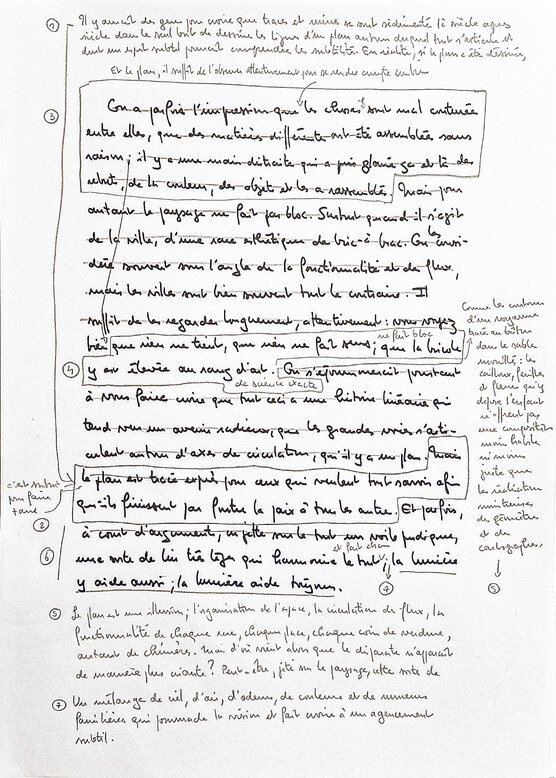 ① Il y aurait des gens pour croire que traces et ruines se sont sédimentés là siècle après
siècle dans le seul but de dessiner les lignes d'un plan autour duquel tout s'articule et
dont un esprit subtil pourrait comprendre les subtilités. En réalité, si le plan a été dessiné,
Et le plan, il suffit de l'observer attentivement pour se rendre compte
③ On a parfois l'impression que les choses sont mal
entre elles, que des matières différentes ont été assemblées sans
raison; il y a une main qui a glané çà et là des
rebuts, de la couleur, des objets et les a rassemblés. Mais pour
autant le paysage ne fait pas bloc. Surtout quand il s'agit
de la ville, d'une rare esthétique de bric-à-brac. On les consi-
dère souvent sous l'angle de la fonctionnalité et du flux,
mais les villes sont bien souvent tout le contraire. Il
suffit de les regarder longuement, attentivement: vous voyez
ne fait bloc
bien que rien ne tient, que rien ne fait sens; que la bricole
④ y est élevée au rang d'art. On s'époumonerait pourtant
de science exacte
à vous faire croire que tout ceci a une histoire linéaire qui
tend vers un avenir radieux, que les grandes voies s'arti-
culent autour d'axes de circulation, qu'il y a un plan. Mais
le plan est tracé exprès pour ceux qui veulent tout savoir afin
qu'ils finissent par foutre la paix à tous les autres. Et parfois,
à court d'arguments, on jette sur le tout un voile pudique,
et fait écran
une sorte de très léger qui harmonise le tout; la lumière
y aide aussi; la lumière aide toujours.
c'est surtout
pour faire
taire
②
⑥
⑦
Comme les contours
d'un royaume
tracé au bâton
dans le sable
mouillé: les
cailloux, feuilles
et fleurs qu'y
dépose l'enfant
n'offrent pas
une composition
moins habile
ni moins
juste que
les
de géomètres
et de
cartographes.
⑤
⑤ Le plan est une illusion; l'organisation de l'espace, la circulation du flux, la
fonctionnalité de chaque rue, chaque place, chaque coin de verdure,
autant de chimères. Mais d'où vient alors que le disparate n'apparaît
de manière plus criante? Peut-être, jetée sur le paysage, cette sorte de
⑦ Un mélange de ciel, d'air, d'odeurs, de couleurs et de rumeurs
familières qui pommade la vision et fait croire à un agencement
subtil.